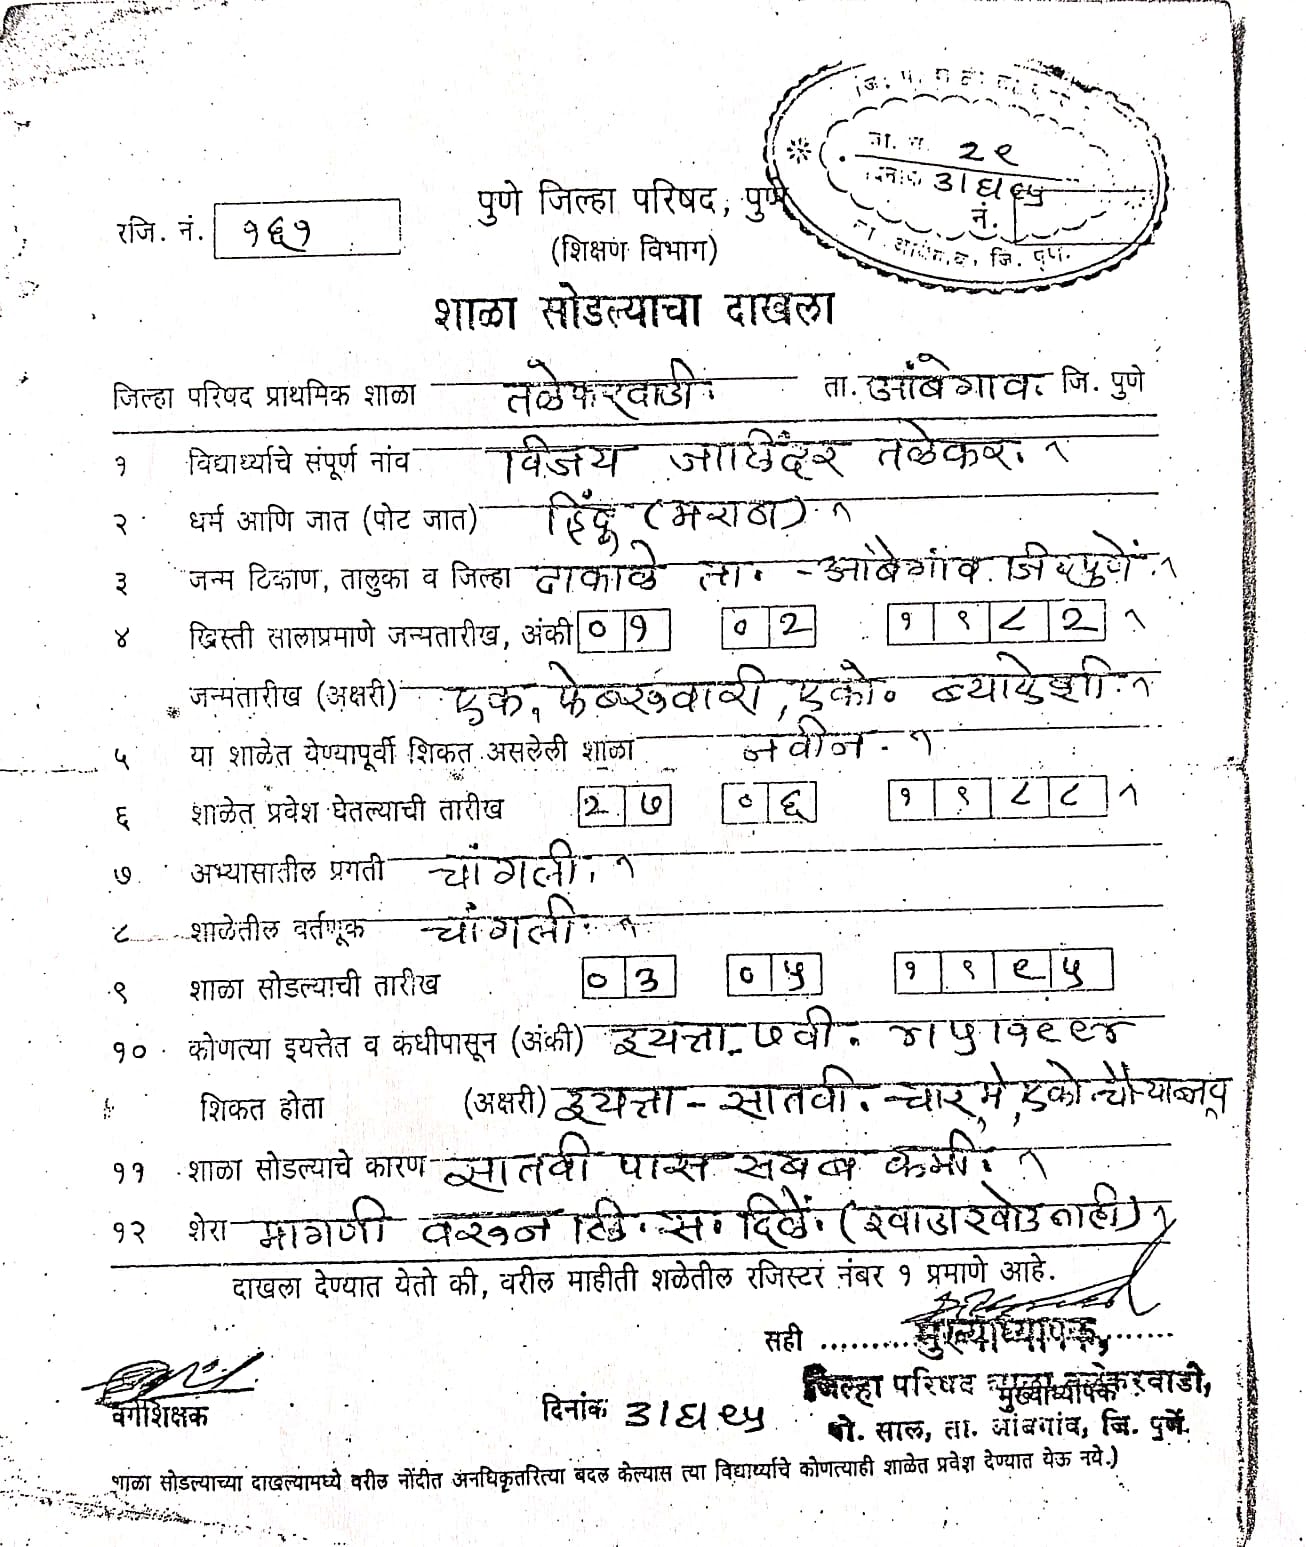 जि. प.
जा. न. २९
दिनांक ३।६।९५
नं.
ता. आंबेगाव, जि. पुणे.
रजि. नं. १६१
पुणे जिल्हा परिषद, पुणे
(शिक्षण विभाग)
शाळा सोडल्याचा दाखला
जिल्हा परिषद प्राथमिक शाळा तळेकरवाडी. ता. आंबेगाव. जि. पुणे
१ विद्यार्थ्याचे संपूर्ण नांव विजय जाछिंदर तळेकर. १
२ धर्म आणि जात (पोट जात) हिंदू (मराठा). १
३ जन्म टिकाण, तालुका व जिल्हा ता. - आंबेगांव १
४ ख्रिस्ती सालाप्रमाणे जन्मतारीख, अंकी ०१ ०२ १९८२ १
जन्मतारीख (अक्षरी) एक, फेब्रुवारी, एको. ब्याऐंशी. १
५ या शाळेत येण्यापूर्वी शिकत असलेली शाळा नवीन. १
६ शाळेत प्रवेश घेतल्याची तारीख २७ ०६ १९८८ १
७ अभ्यासातील प्रगती चांगली. १
८ शाळेतील वर्तणूक चांगली. १
९ शाळा सोडल्याची तारीख ०३ ०५ १९९५
१० कोणत्या इयत्तेत व कधीपासून (अंकी) इयत्ता. ७वी. ४।५।१९९४
शिकत होता (अक्षरी) इयत्ता - सातवी. चार मे, एको चौऱ्याण्णव
११ शाळा सोडल्याचे कारण सातवी पास सबब कमी. १
१२ शेरा मागणी वरून दिले. १
दाखला देण्यात येतो की, वरील माहीती शळेतील रजिस्टर नंबर १ प्रमाणे आहे.
सही .......... मुख्याध्यापक,
जिल्हा परिषद शाळा तळेकरवाडी,
वर्गशिक्षक दिनांक ३।६।९५ मुख्याध्यापक
पो. साल, ता. आंबगांव, जि. पुणें.
शाळा सोडल्याच्या दाखल्यामध्ये वरील नोंदीत अनधिकृतरित्या बदल केल्यास त्या विद्यार्थ्याचे कोणत्याही शाळेत प्रवेश देण्यात येऊ नये.)